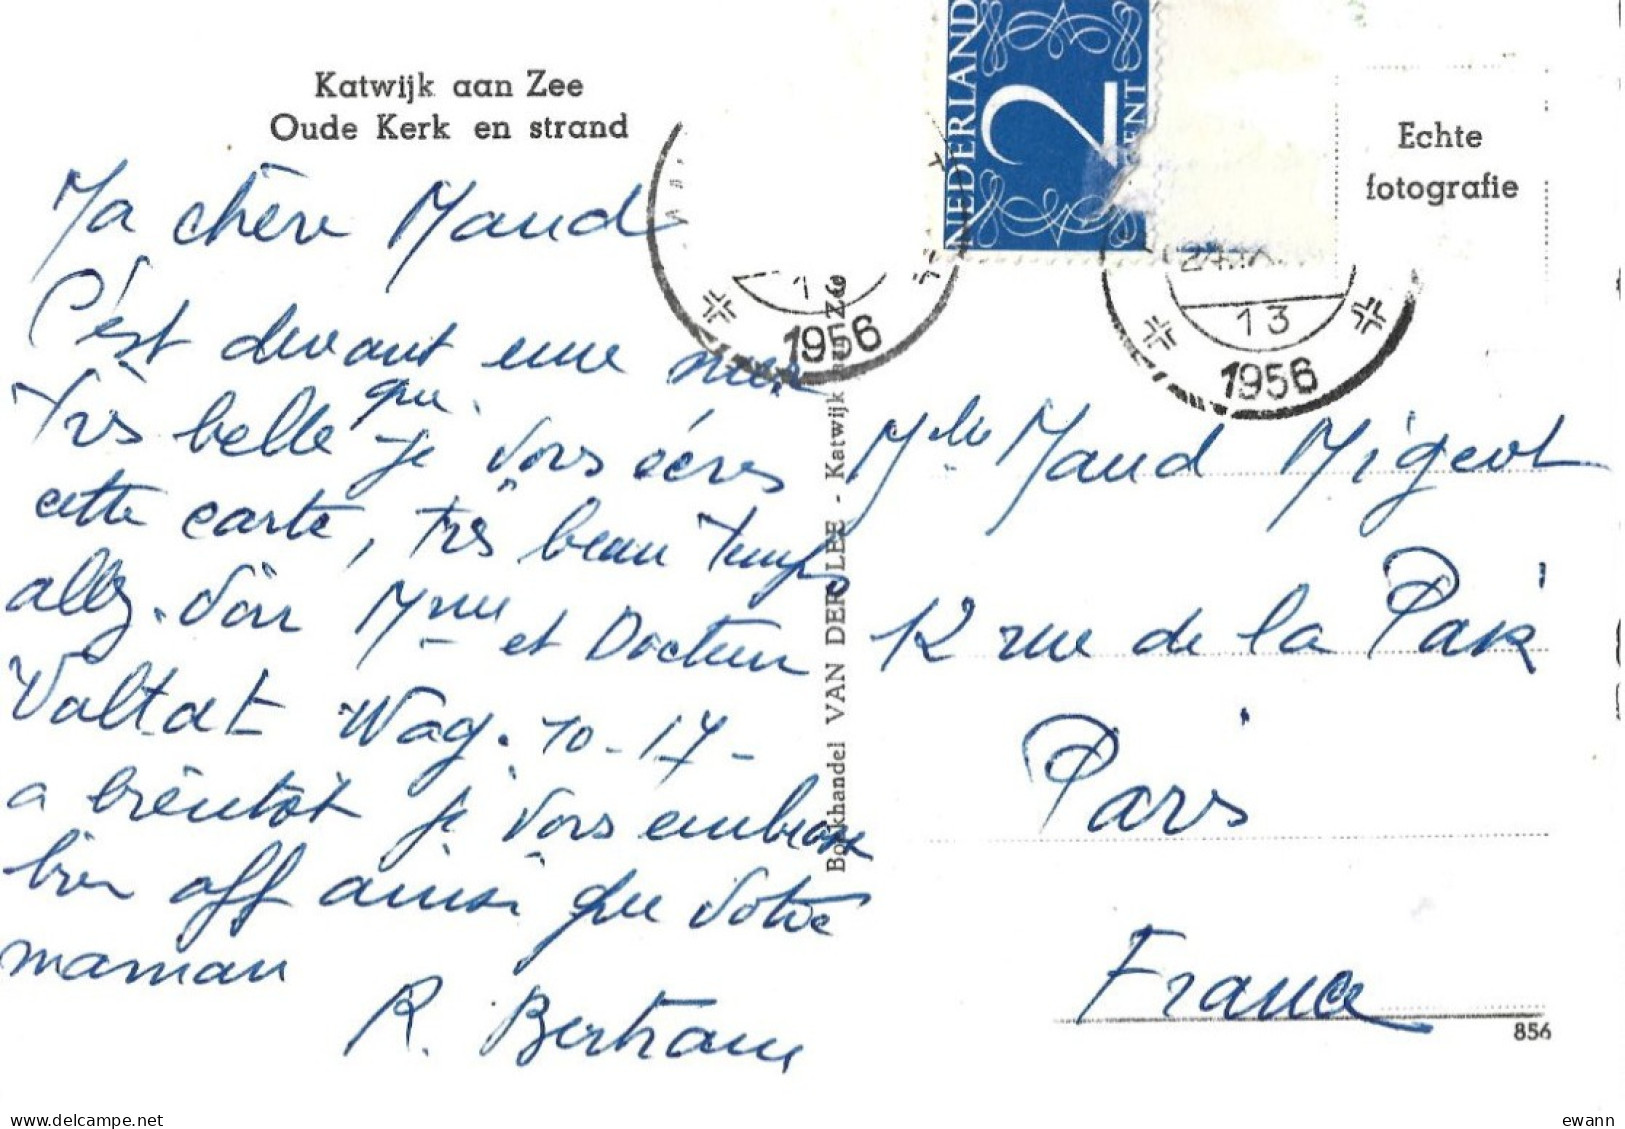 Katwijk aan Zee
Oude Kerk en strand
Ma chère Maud
C'est devant une mer
très belle que je vous écris
cette carte, très beau temps
allez voir Mme et Docteur
Wag. 10-17-
a bientôt je vous embrasse
bien aff ainsi que votre
maman
R. Bertrand
Boekhandel VAN DER LEE - Katwijk aan Zee
NEDERLAND
2
CENT
1956
13
1956
Echte
fotografie
Mlle Maud Migeot
12 rue de la Paix
Paris
France
856
ewann